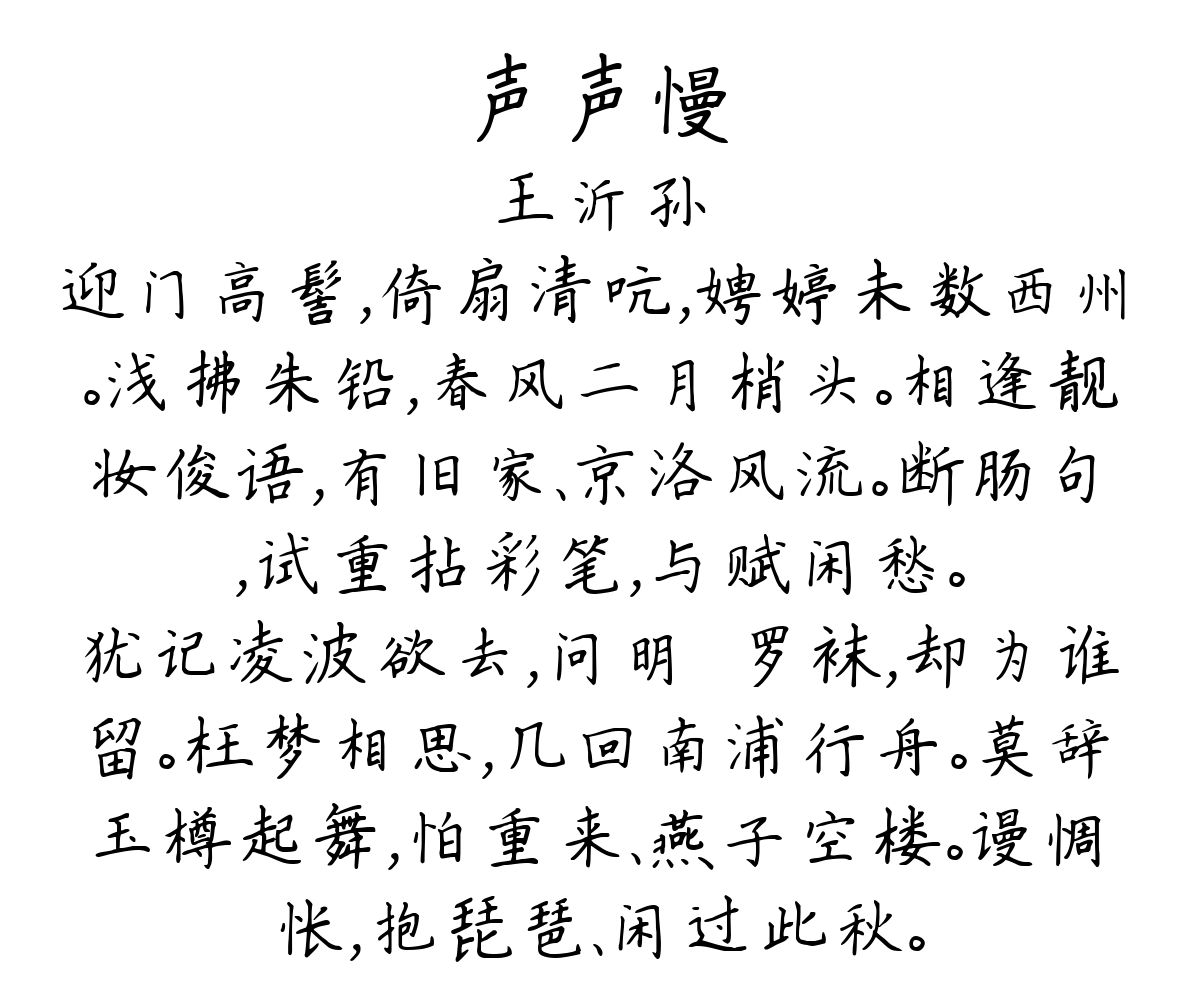 声声慢
王沂孙
迎门高髻,倚扇清吭,娉婷未数西州
。浅拂朱铅,春风二月梢头。相逢靓
妆俊语,有旧家、京洛风流。断肠句
,试重拈彩笔,与赋闲愁。
犹记凌波欲去,问明 罗袜,却为谁
留。枉梦相思,几回南浦行舟。莫辞
玉樽起舞,怕重来、燕子空楼。谩惆
怅,抱琵琶、闲过此秋。